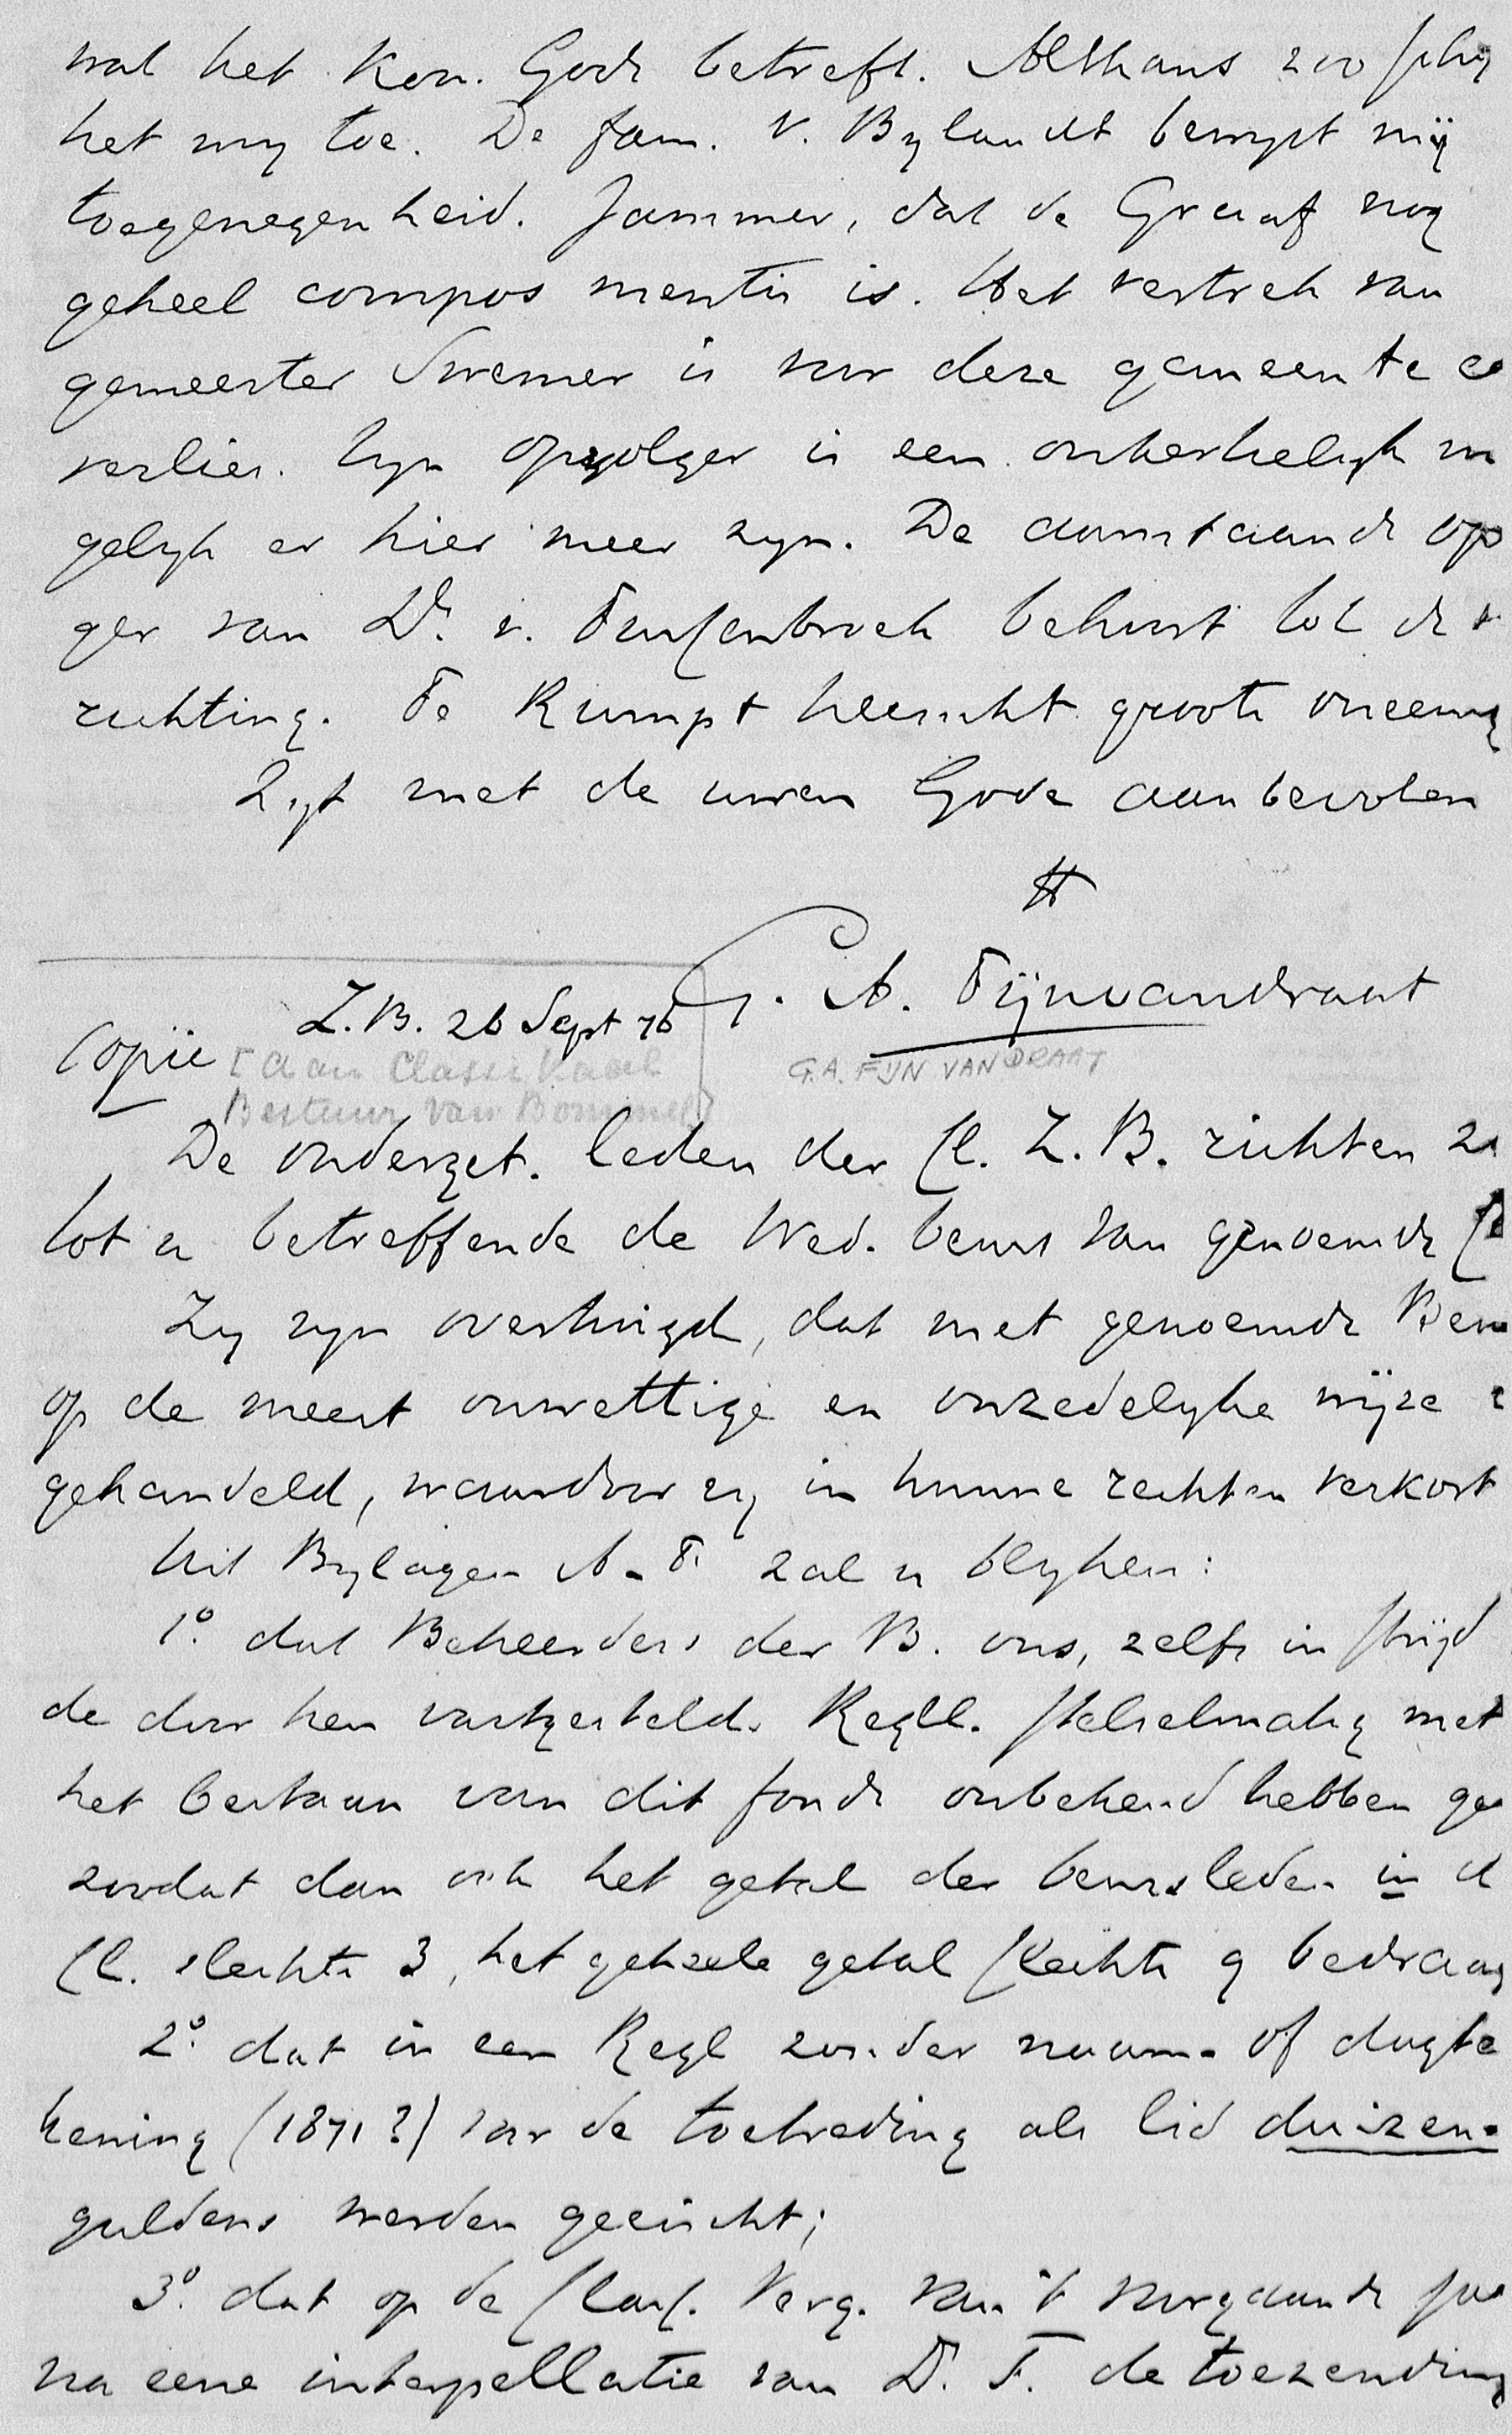 wat het Kon. Gods betreft. Althans zoo schij
het my toe. De fam. v. Bylandt bewyst mij
toegenegenheid. Jammer, dat de Graaf nog
geheel compos mentis is. Het vertrek van
gemeester Swemer is voor deze gemeente ee
verlies. Zyn opvolger is een onkerkelyk m
gelyk er hier meer zyn. De aanstaande opv
ger van Ds. v. behoort tot de
richting. Te Rumpt heerscht groote oneenig
Zyt met de uwen Gode aanbevolen
tt
G. A. Fijnvandraat
G.A. FIJN VAN DRAAT
Z.B. 26 Sept 76
Copie [aan Classikaal
Bestuur van Bommel]
De onderget. leden der Cl. Z. B. richten zi
tot u betreffende de Wed. beurs van genoemde Cl
Zy zyn overtuigd, dat met genoemde Beu
op de meest onwettige en onzedelyke wijze i
gehandeld, waardoor zy in hunne rechten verkort
Uit Bylagen A-F zal u blyken:
1o. dat Beheerders der B. ons, zelfs in strijd
de door hen vastgestelde Regll. stelselmatig met
het bestaan van dit fonds onbekend hebben ge
zoodat dan ook het getal der beursleden in d
Cl. slechts 3, het geheele getal slechts 9 bedraag
2o. dat in een Regl zonder naam- of dagte
kening (1871?) voor de toetreding als lid duizen-
guldens werden geeischt;
3o. dat op de Class. Verg. van 't voorgaande jaa
na eene interpellatie van Ds. F. de toezending